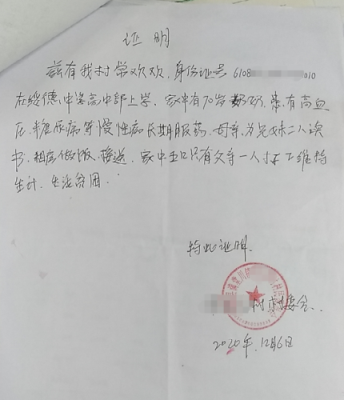 证明
兹有我村学欢欢,身份证号6108 010
在绥德中学高中部上学,家中有70岁 患有高血
压、糖尿病等慢性病长期服药,母亲为兄妹二人读
书,租房做饭、接送,家中五口只有父亲一人 维持
生计,生活贫困。
特此证明
村 委会.
2020年12月6日